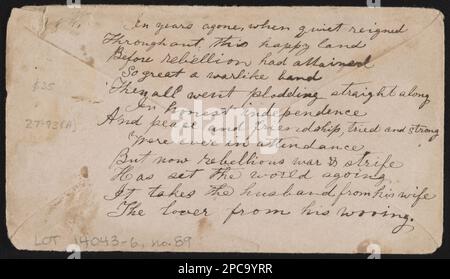 In years agone, when quiet reigned
Throughout this happy land
Before rebellion had attained
So great a warlike band
They all went plodding straight along
In honest independence
And peace and friendship, tried and strong
Were ever in attendance
But now rebellious war & strife
Has set the world agoing
It takes the husband from his wife
The lover from his wooing.
$25
27-93(A)
LOT 14043-6, no. 89
alamy
Image ID: 2PC9YRR
www.alamy.com